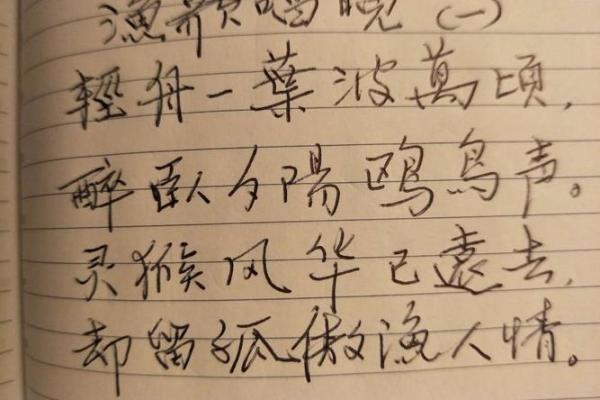 漁歌唱晚（一）
輕舟一葉波萬頃，
醉臥夕陽鸥鳥声。
灵猴风华已遠去，
却留孤傲漁人情。